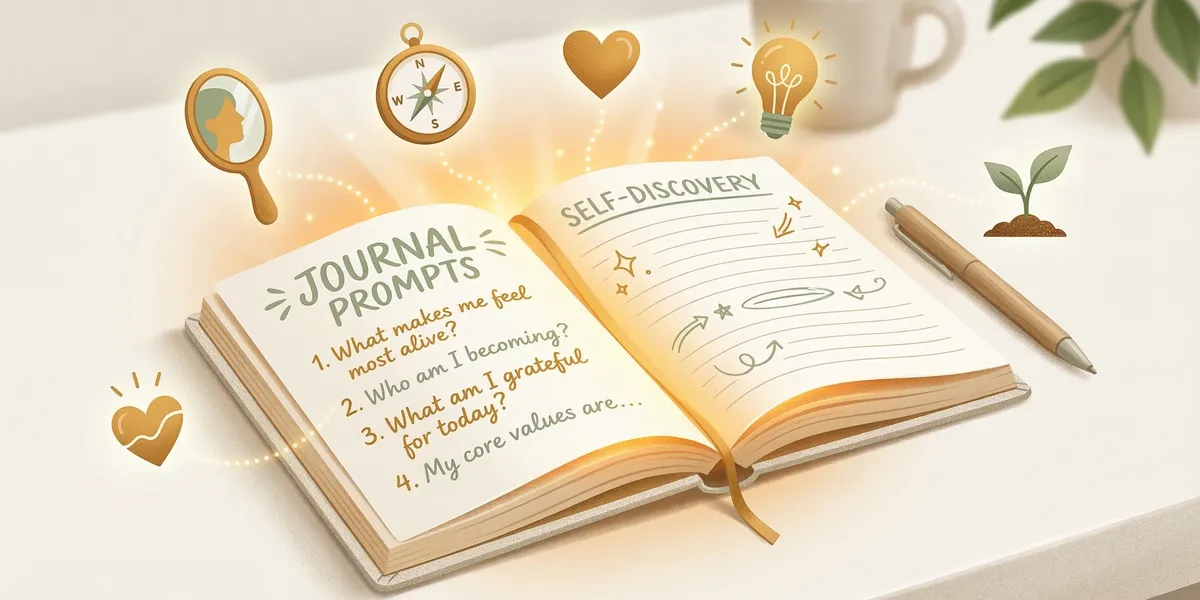 N
W E
S
JOURNAL
PROMPTS
1. What makes me feel
most alive?
2. Who am I becoming?
3. What am I grateful
for today?
4. My core values are...
SELF-DISCOVERY